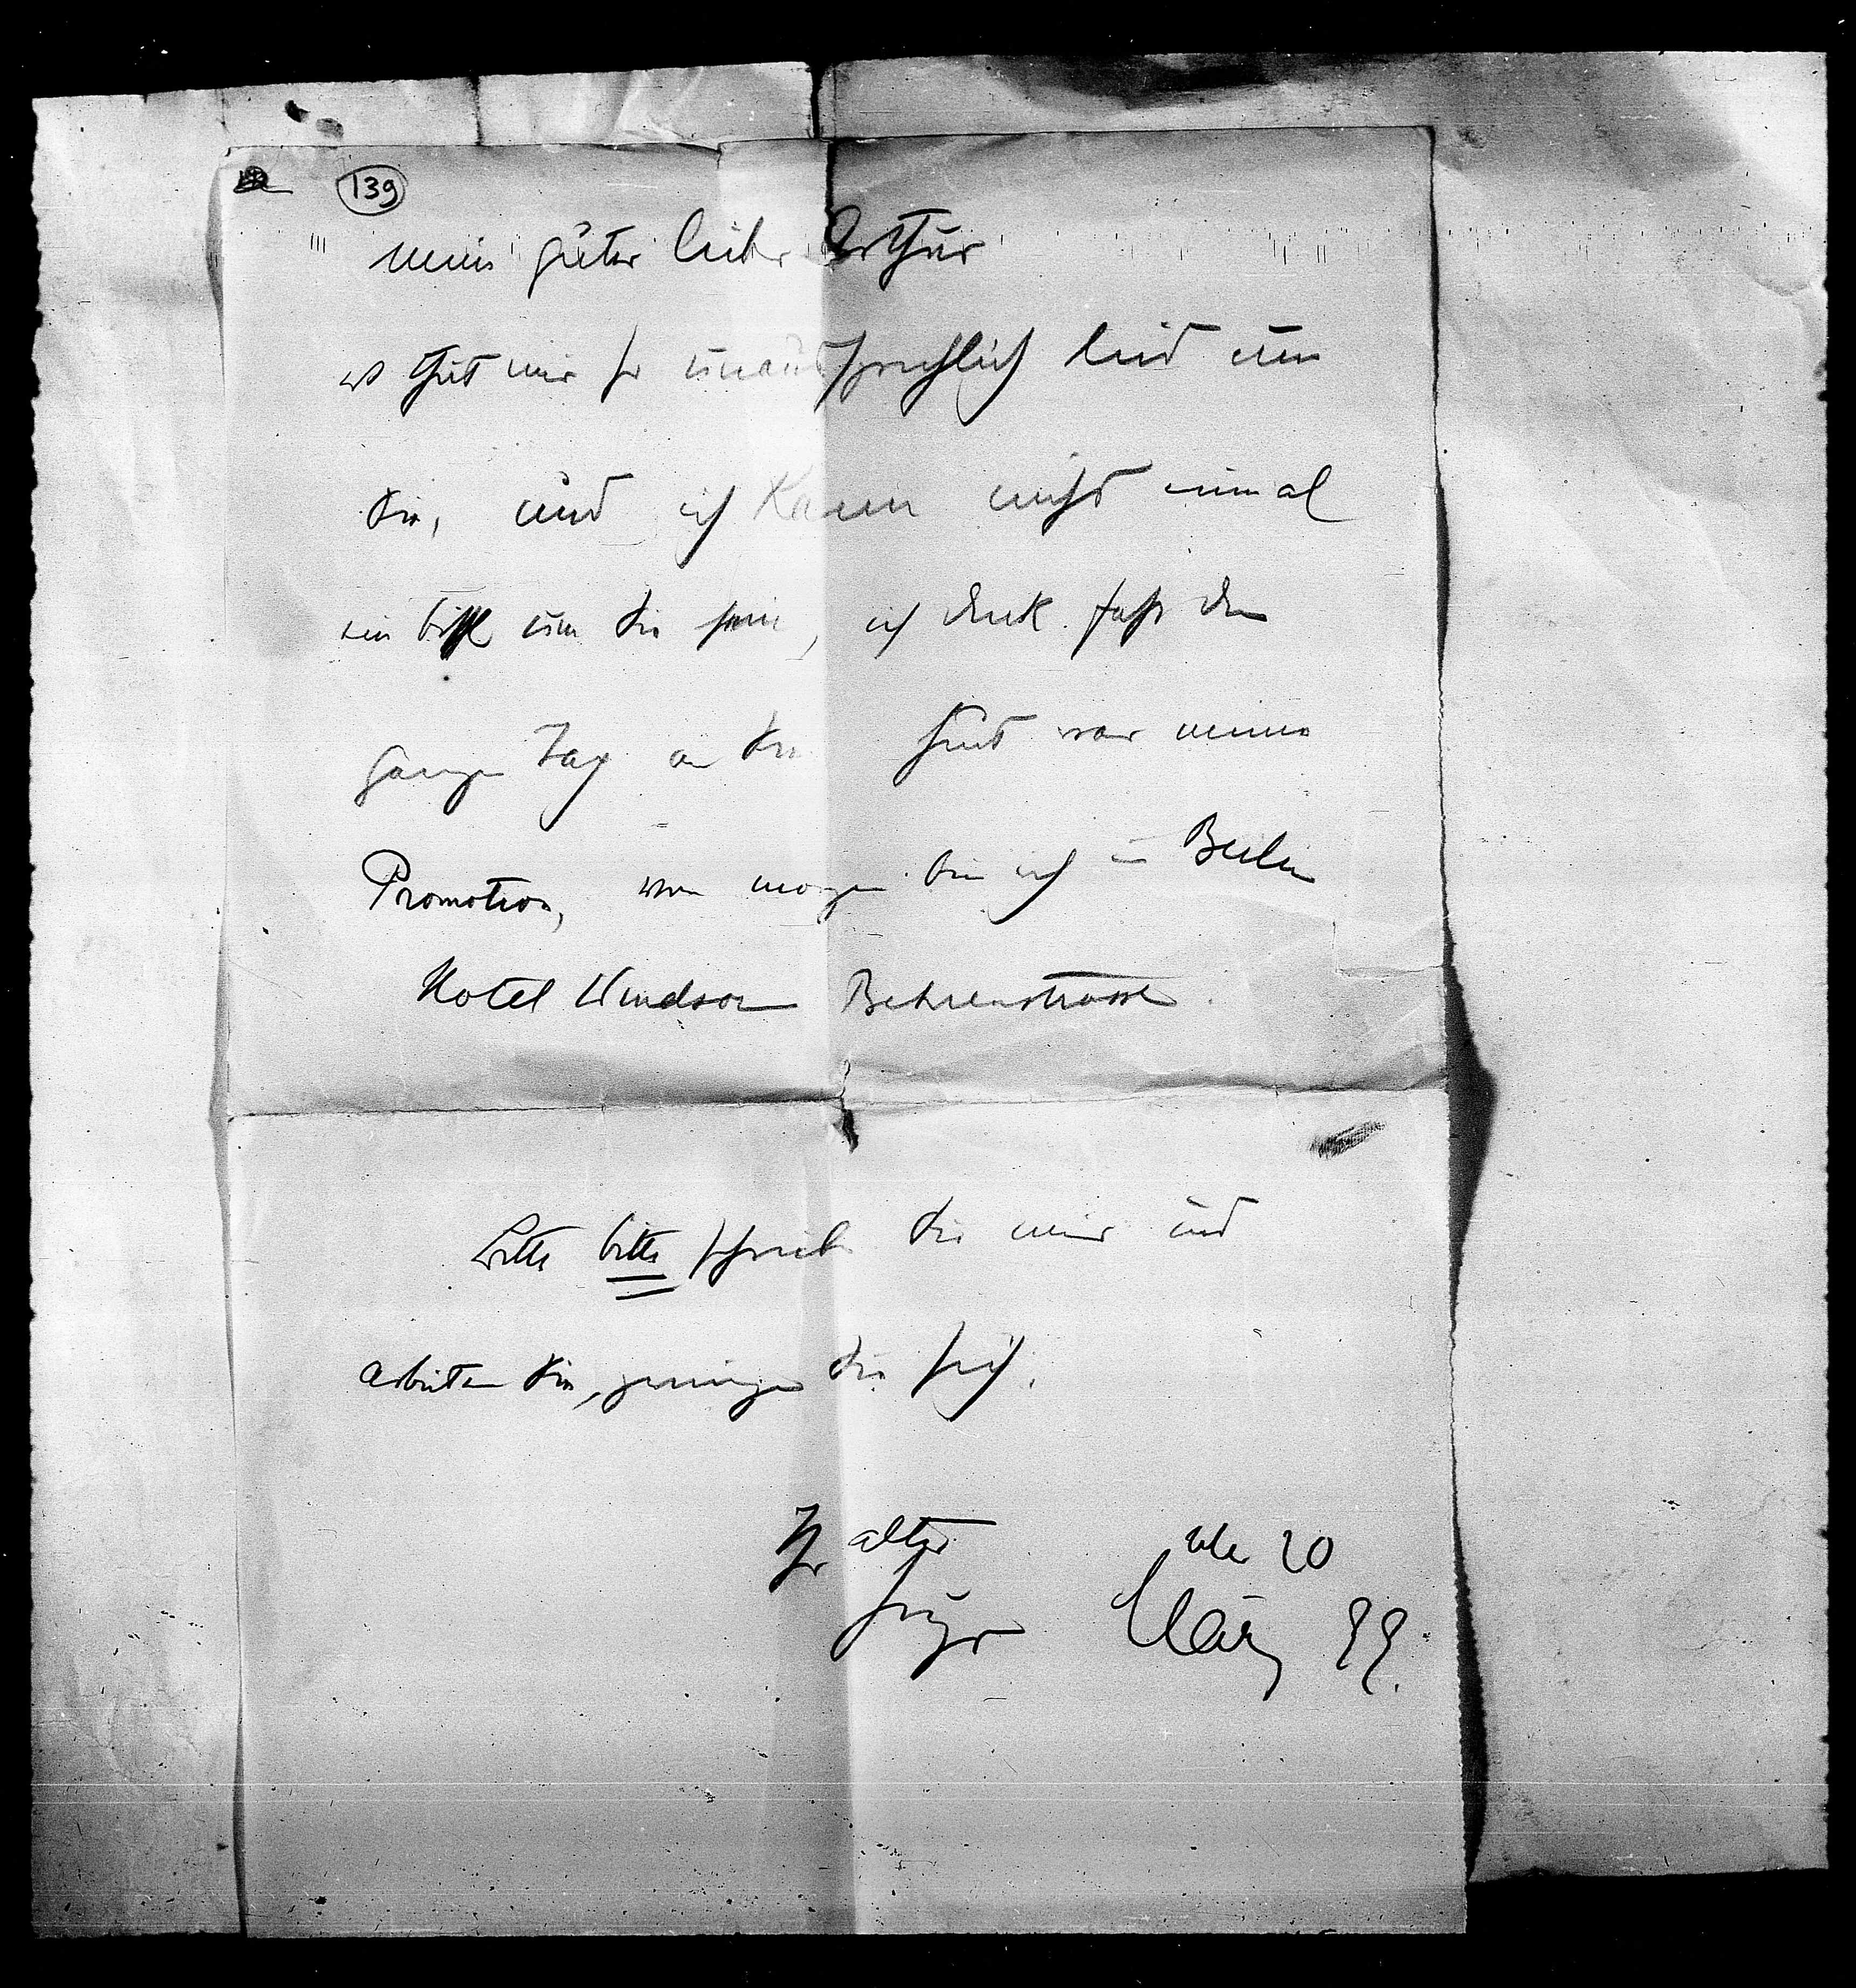 139
mein guter lieber Arthur
es thut mir so unaussprechlich leid um
Sie, und ich kann nicht einmal
ein bissl um Sie sein, ich denk fast den
ganzen Tag an Sie. Heut war meine
Promotion, von morgen bin ich in Berlin
Hotel Windsor Behrenstrasse.
Bitte bitte schreiben Sie mir und
arbeiten Sie, zwingen Sie sich.
Ihr alter
Hugo
20
März 99.